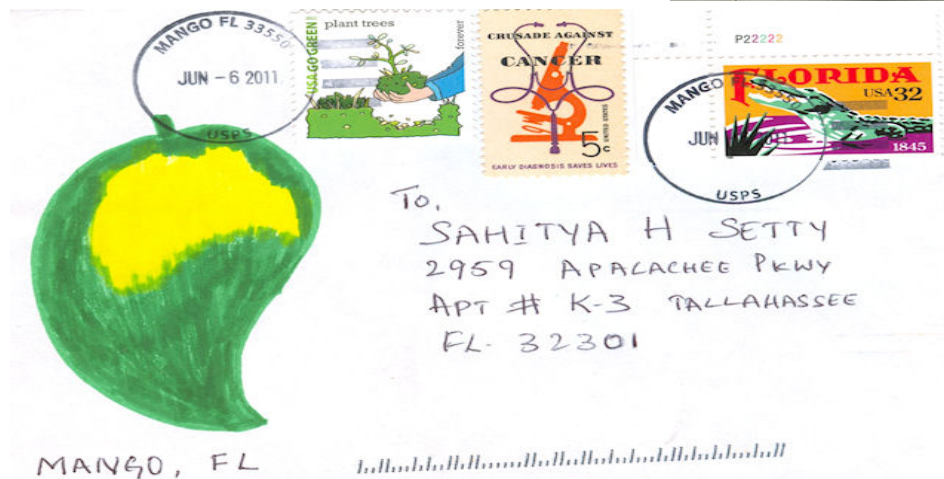 MANGO FL 33550
JUN - 6 2011
USPS
USA GO GREEN
plant trees
forever
CRUSADE AGAINST
CANCER
5c
UNITED STATES
EARLY DIAGNOSIS SAVES LIVES
P22222
FLORIDA
USA 32
1845
MANGO FL
JUN
USPS
To,
SAHITYA H SETTY
2959 APALACHEE PKWY
APT # K-3 TALLAHASSEE
FL- 32301
MANGO, FL